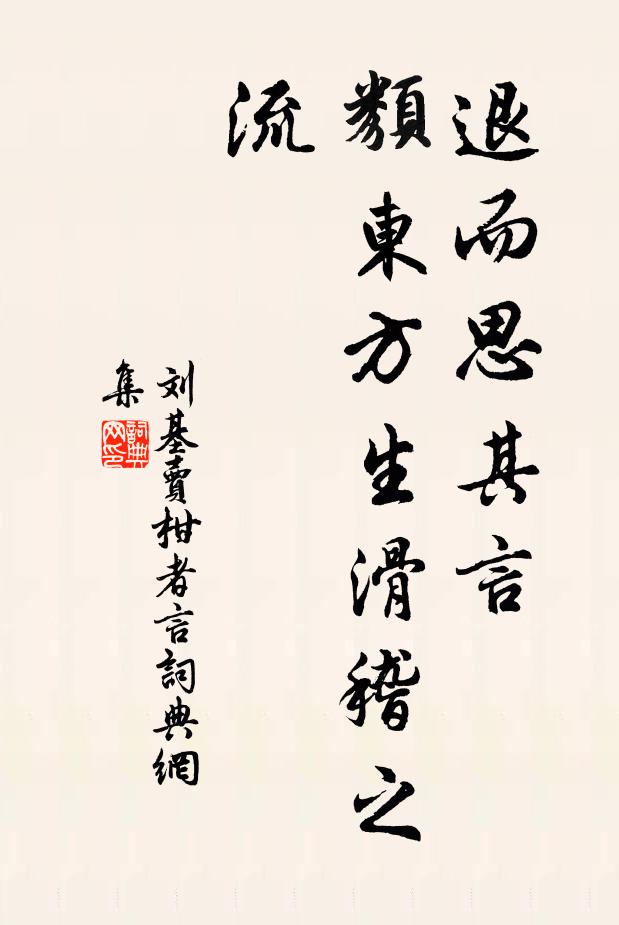 退而思其言
類東方生滑稽之
流
刘基賣柑者言詞典網
集
詞典
网印